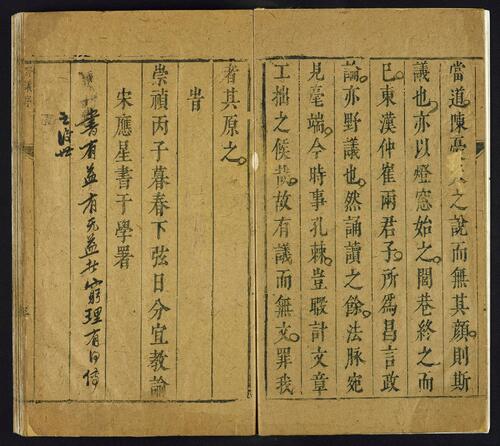 當道。陳亮之說而無其顏。則斯
議也。亦以燈窓始之。閭巷終之而
已。東漢仲崔兩君子。所爲昌言政
論。亦野議也。然誦讀之餘。法脉宛
見毫端。今時事孔棘。豈暇計文章
工拙之候哉。故有議而無文。罪我
者其原之。
旹
崇禎丙子暮春下弦日分宜教諭
宋應星書于學署
書有益有无益窮理有